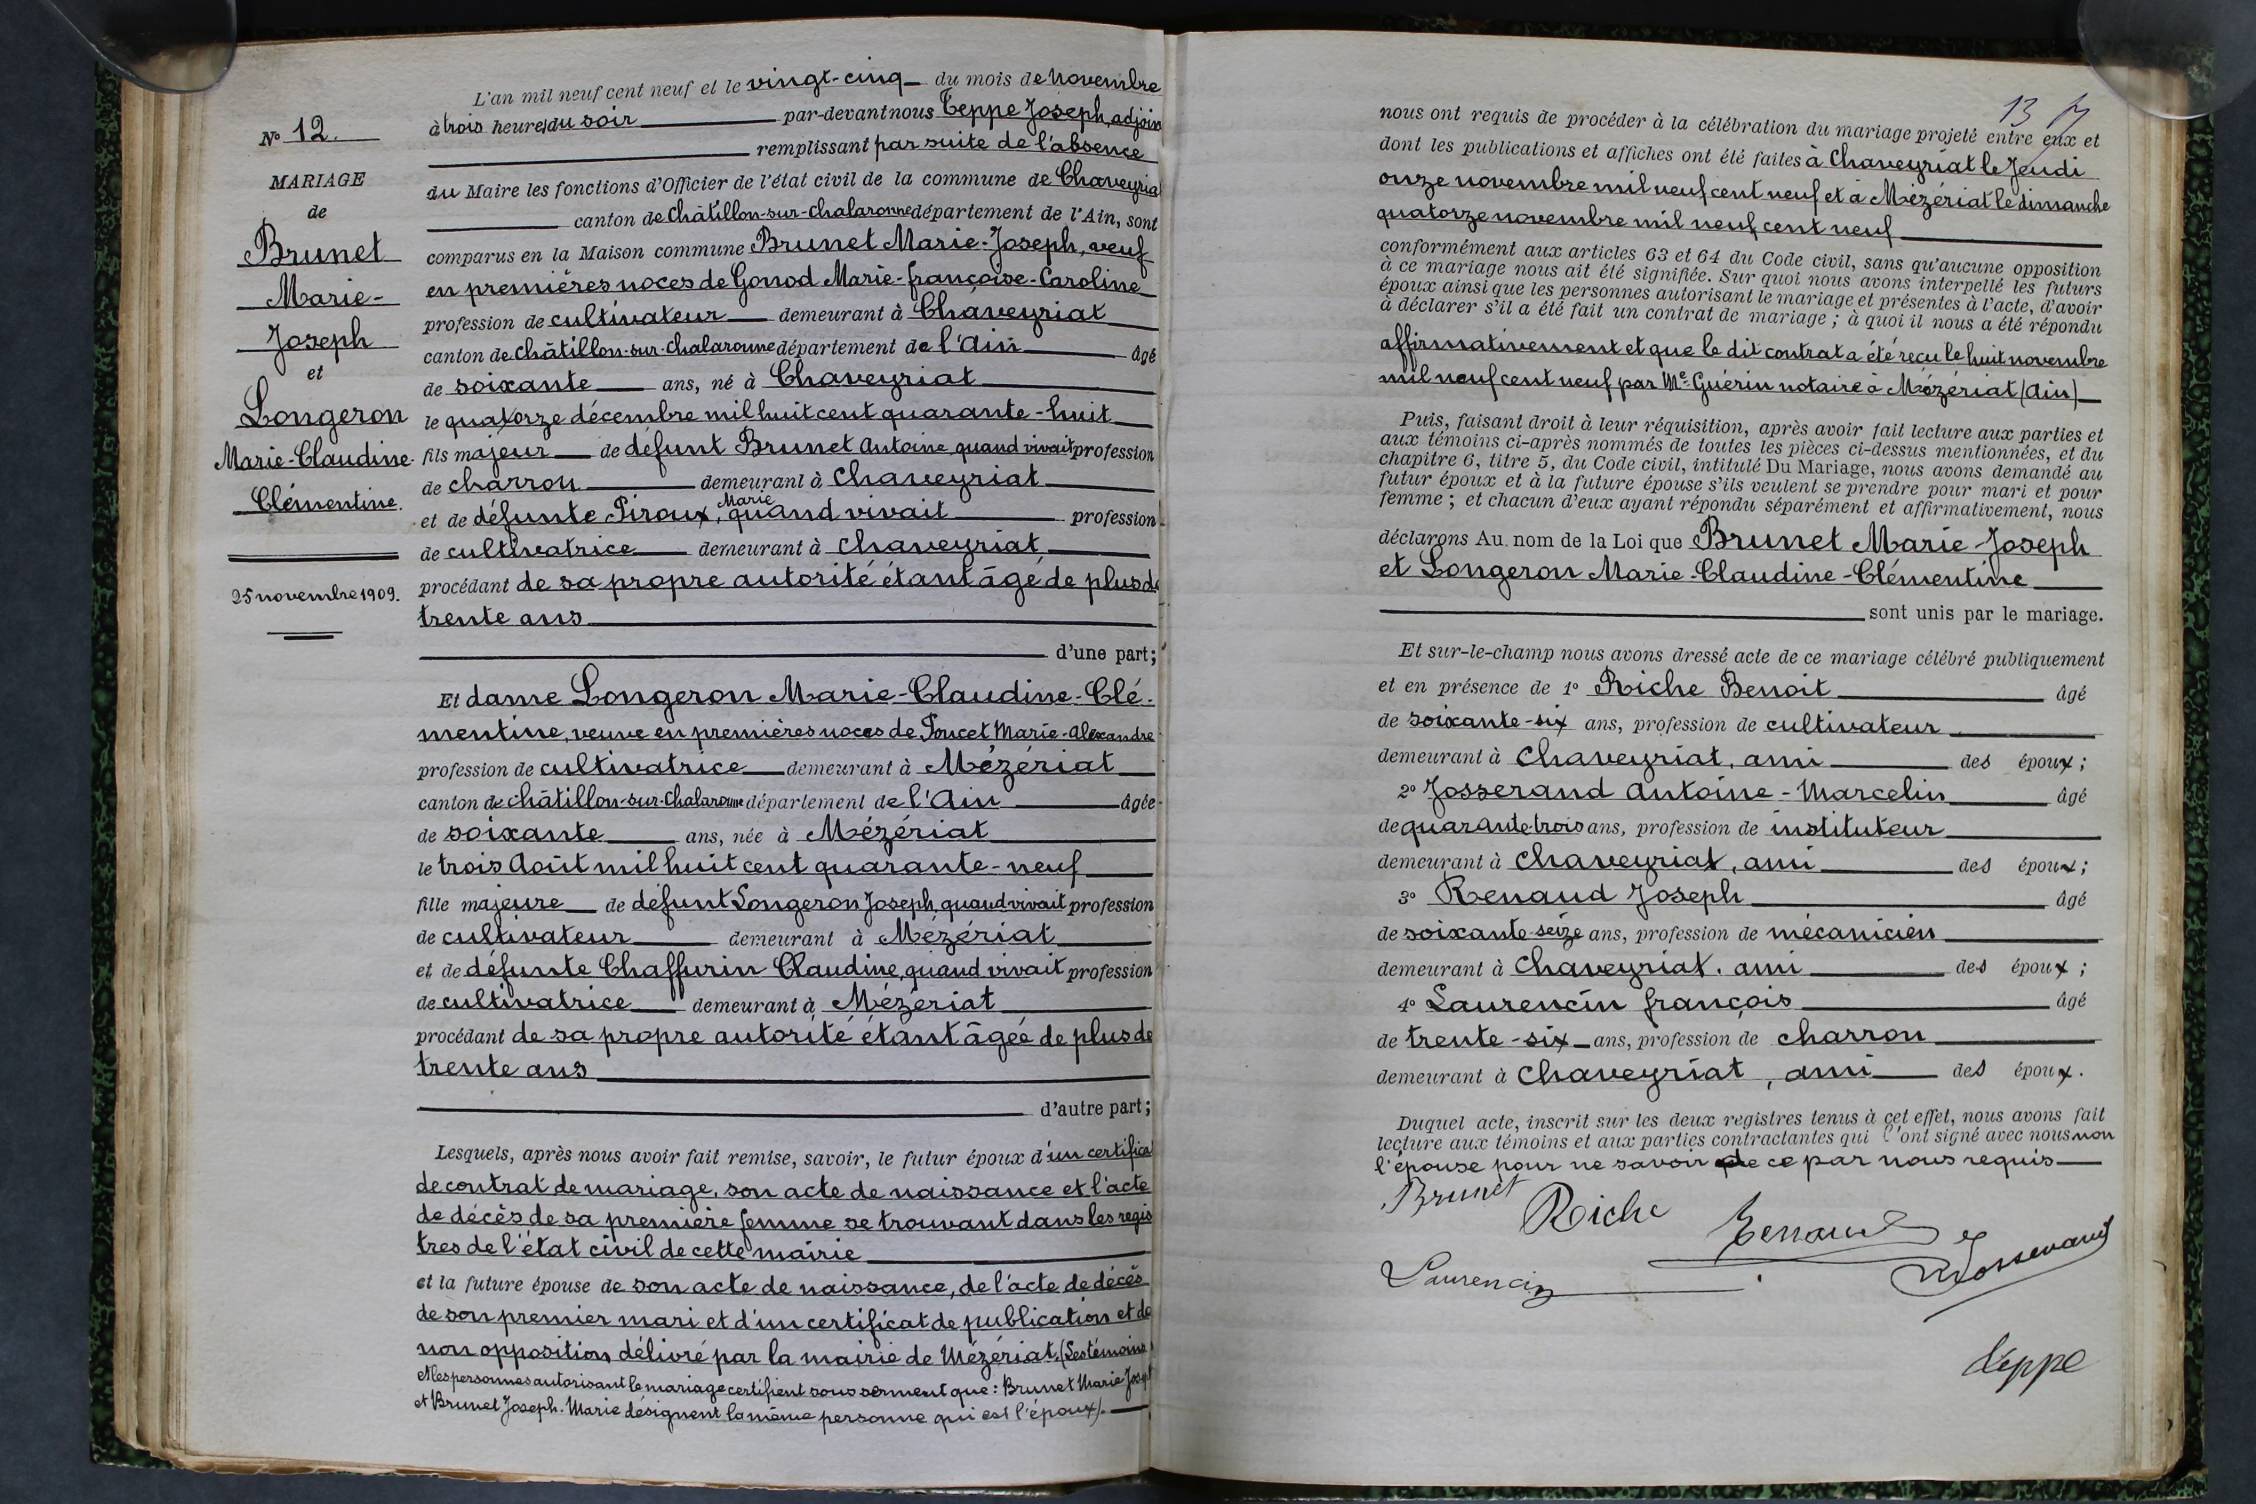 L'an mil neuf cent neuf et le vingt-cinq du mois de Novembre
à trois heures du soir par-devant nous Teppe Joseph, adjoin
remplissant par suite de l'absence
du Maire les fonctions d'Officier de l'état civil de la commune de Chaveyria
canton de Châtillon-sur-Chalaronne département de l'Ain, sont
comparus en la Maison commune Brunet Marie-Joseph, veuf
en premières noces de Gonod Marie-françoise-Caroline
profession de cultivateur demeurant à Chaveyriat
canton de Châtillon-sur-Chalaronne département de l'Ain âgé
de soixante ans, né à Chaveyriat
le quatorze décembre mil huit cent quarante-huit
fils majeur de défunt Brunet Antoine quand vivait profession
de charron demeurant à Chaveyriat
Marie
et de défunte Piroux, quand vivait profession
de cultivatrice demeurant à Chaveyriat
procédant de sa propre autorité étant âgé de plus de
trente ans
d'une part;
Et dame Longeron Marie-Claudine-Clé-
mentine, veuve en premières noces de Poncet Marie-Alexandre
profession de cultivatrice demeurant à Mézériat
canton de Châtillon-sur-Chalaronne département de l'Ain âgée
de soixante ans, née à Mézériat
le trois Août mil huit cent quarante-neuf
fille majeure de défunt Longeron Joseph, quand vivait profession
de cultivateur demeurant à Mézériat
et de défunte Chaffurin Claudine, quand vivait profession
de cultivatrice demeurant à Mézériat
procédant de sa propre autorité étant âgée de plus de
trente ans
d'autre part;
Lesquels, après nous avoir fait remise, savoir, le futur époux d'un certifica
de contrat de mariage, son acte de naissance et l'acte
de décès de sa première femme se trouvant dans les regis
tres de l'état civil de cette mairie
et la future épouse de son acte de naissance, de l'acte de décès
de son premier mari et d'un certificat de publication et de
non opposition délivré par la mairie de Mézériat. (Les témoins
et les personnes autorisant le mariage certifient sous serment que: Brunet Marie Joseph
et Brunet Joseph-Marie désignent la même personne qui est l'époux).
No 12.
MARIAGE
de
Brunet
Marie-
Joseph
et
Longeron
Marie-Claudine-
Clémentine.
25 novembre 1909.
13
nous ont requis de procéder à la célébration du mariage projeté entre eux et
dont les publications et affiches ont été faites à Chaveyriat le Jeudi
onze novembre mil neuf cent neuf et à Mézériat le dimanche
quatorze novembre mil neuf cent neuf
conformément aux articles 63 et 64 du Code civil, sans qu'aucune opposition
à ce mariage nous ait été signifiée. Sur quoi nous avons interpellé les futurs
époux ainsi que les personnes autorisant le mariage et présentes à l'acte, d'avoir
à déclarer s'il a été fait un contrat de mariage; à quoi il nous a été répondu
affirmativement et que le dit contrat a été reçu le huit novembre
mil neuf cent neuf par Me Guérin notaire à Mézériat (Ain)
Puis, faisant droit à leur réquisition, après avoir fait lecture aux parties et
aux témoins ci-après nommés de toutes les pièces ci-dessus mentionnées, et du
chapitre 6, titre 5, du Code civil, intitulé Du Mariage, nous avons demandé au
futur époux et à la future épouse s'ils veulent se prendre pour mari et pour
femme; et chacun d'eux ayant répondu séparément et affirmativement, nous
déclarons Au nom de la Loi que Brunet Marie-Joseph
et Longeron Marie-Claudine-Clémentine
sont unis par le mariage.
Et sur-le-champ nous avons dressé acte de ce mariage célébré publiquement
et en présence de 1° Riche Benoit âgé
de soixante-six ans, profession de cultivateur
demeurant à Chaveyriat, ami des époux;
2° Josserand Antoine-Marcelin âgé
de quarante-trois ans, profession de instituteur
demeurant à Chaveyriat, ami des époux;
3° Renaud Joseph âgé
de soixante-seize ans, profession de mécanicien
demeurant à Chaveyriat, ami des époux;
4° Laurencin françois âgé
de trente-six ans, profession de charron
demeurant à Chaveyriat, ami des époux.
Duquel acte, inscrit sur les deux registres tenus à cet effet, nous avons fait
lecture aux témoins et aux parties contractantes qui l'ont signé avec nous non
l'épouse pour ne savoir de ce par nous requis
Brunet Riche Renaud
Laurencin Josserand
Teppe